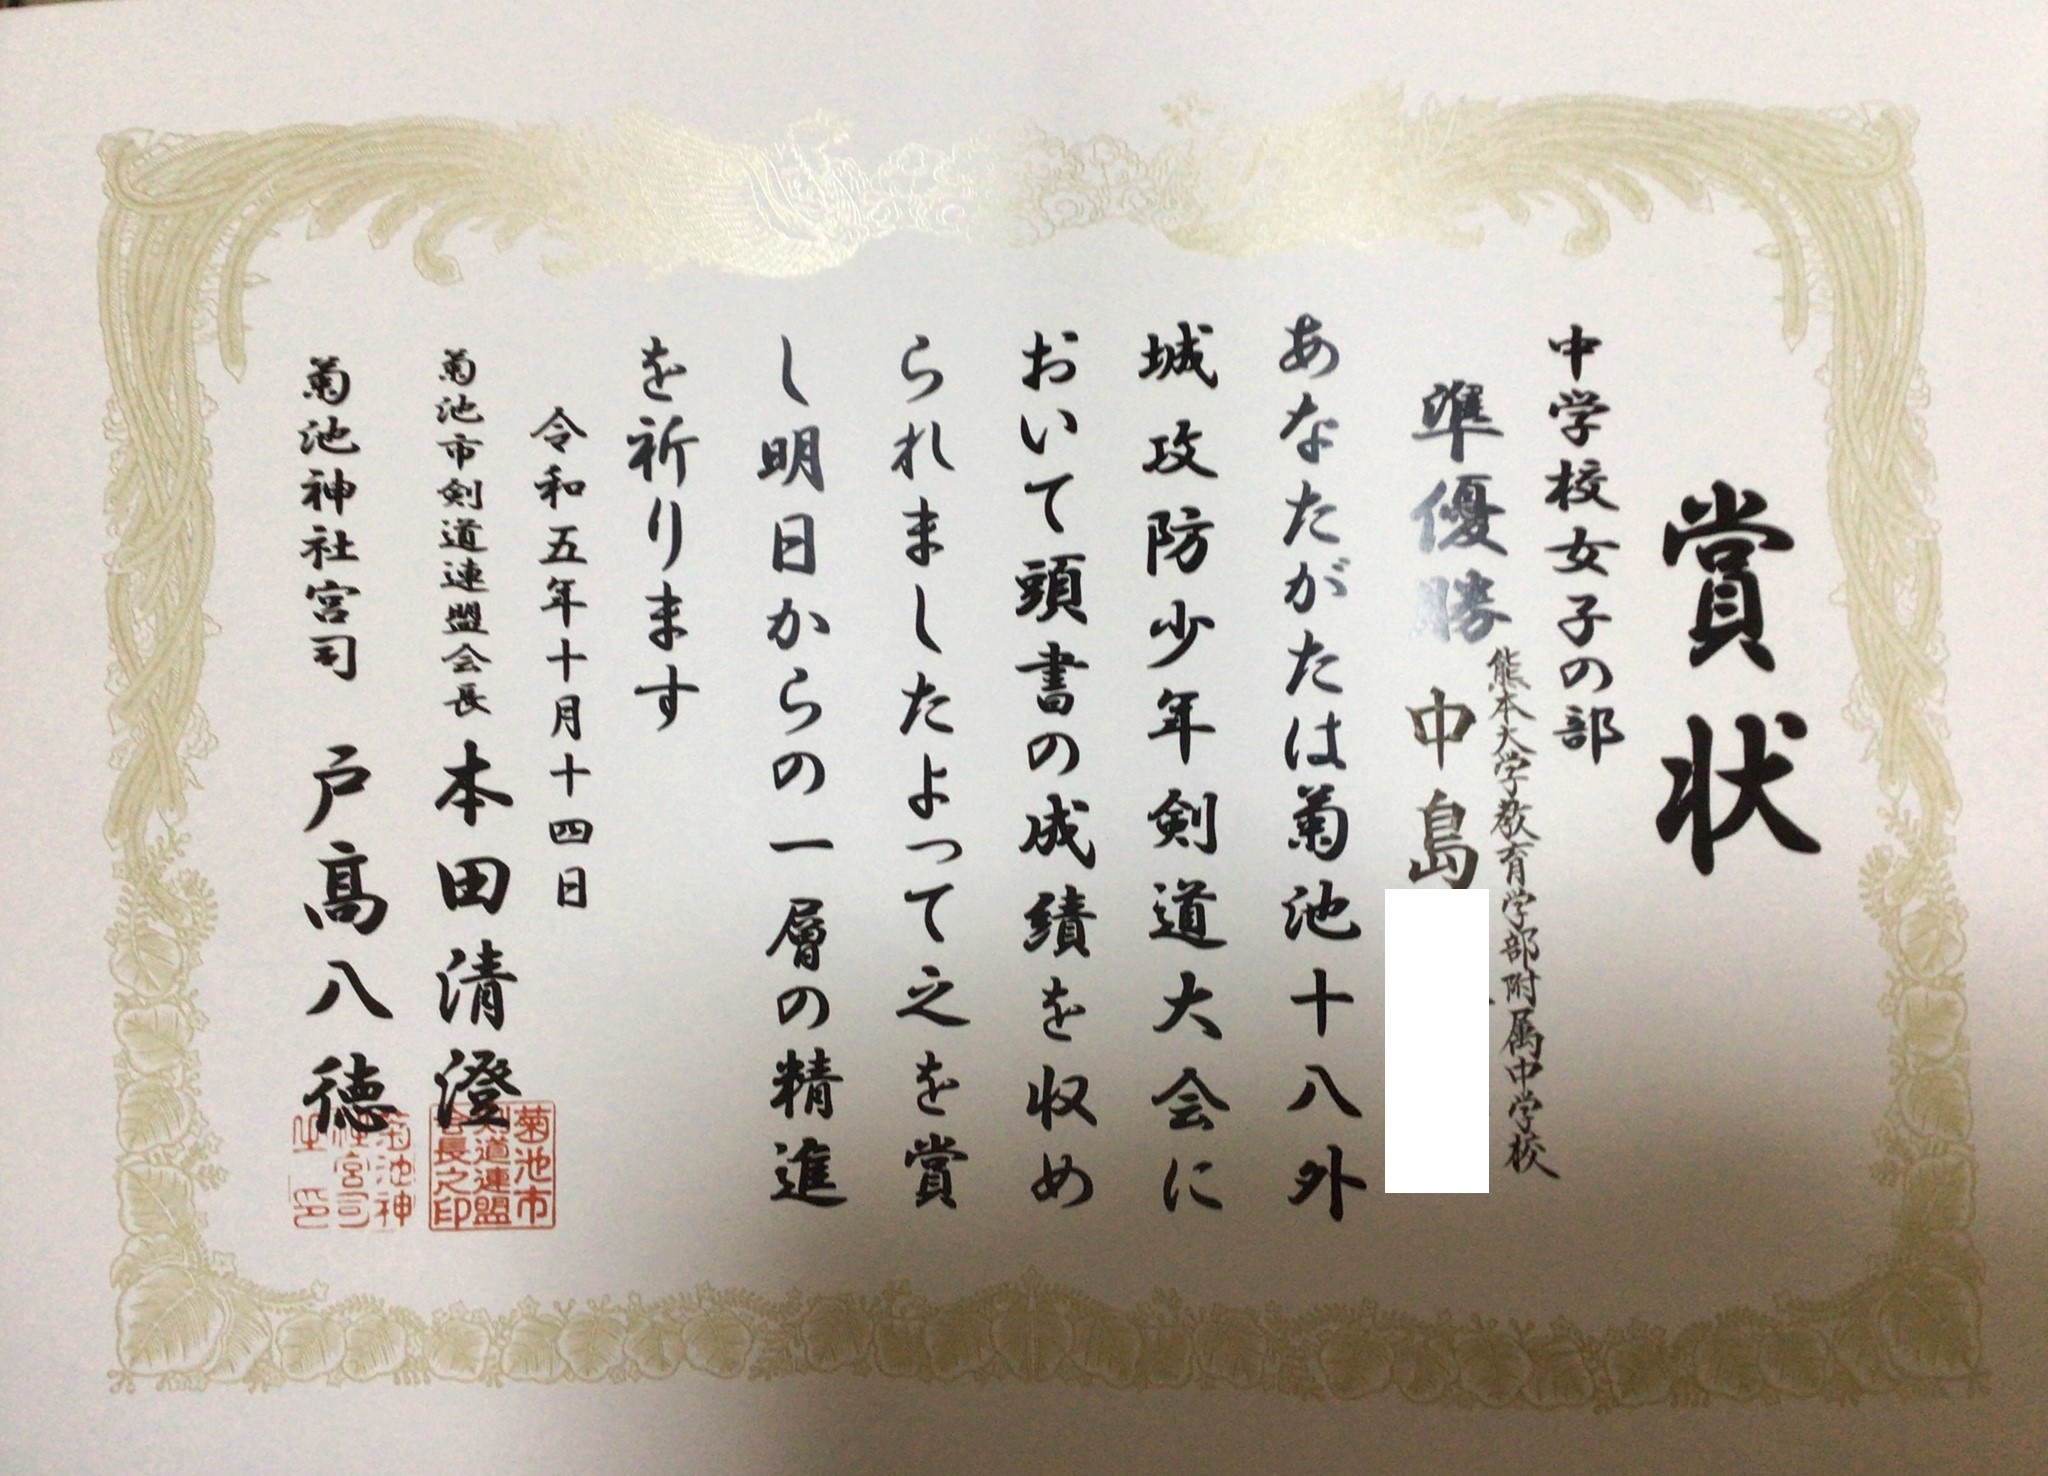 賞状
中学校女子の部
熊本大学教育学部附属中学校
準優勝 中島
あなたがたは菊池十八外
城攻防少年剣道大会に
おいて頭書の成績を収め
られましたよって之を賞
し明日からの一層の精進
を祈ります
令和五年十月十四日
菊池市剣道連盟会長 本田清澄
菊池市
剣道連盟
会長之印
菊池神社宮司 戸髙八徳
菊池神
社宮司
之印